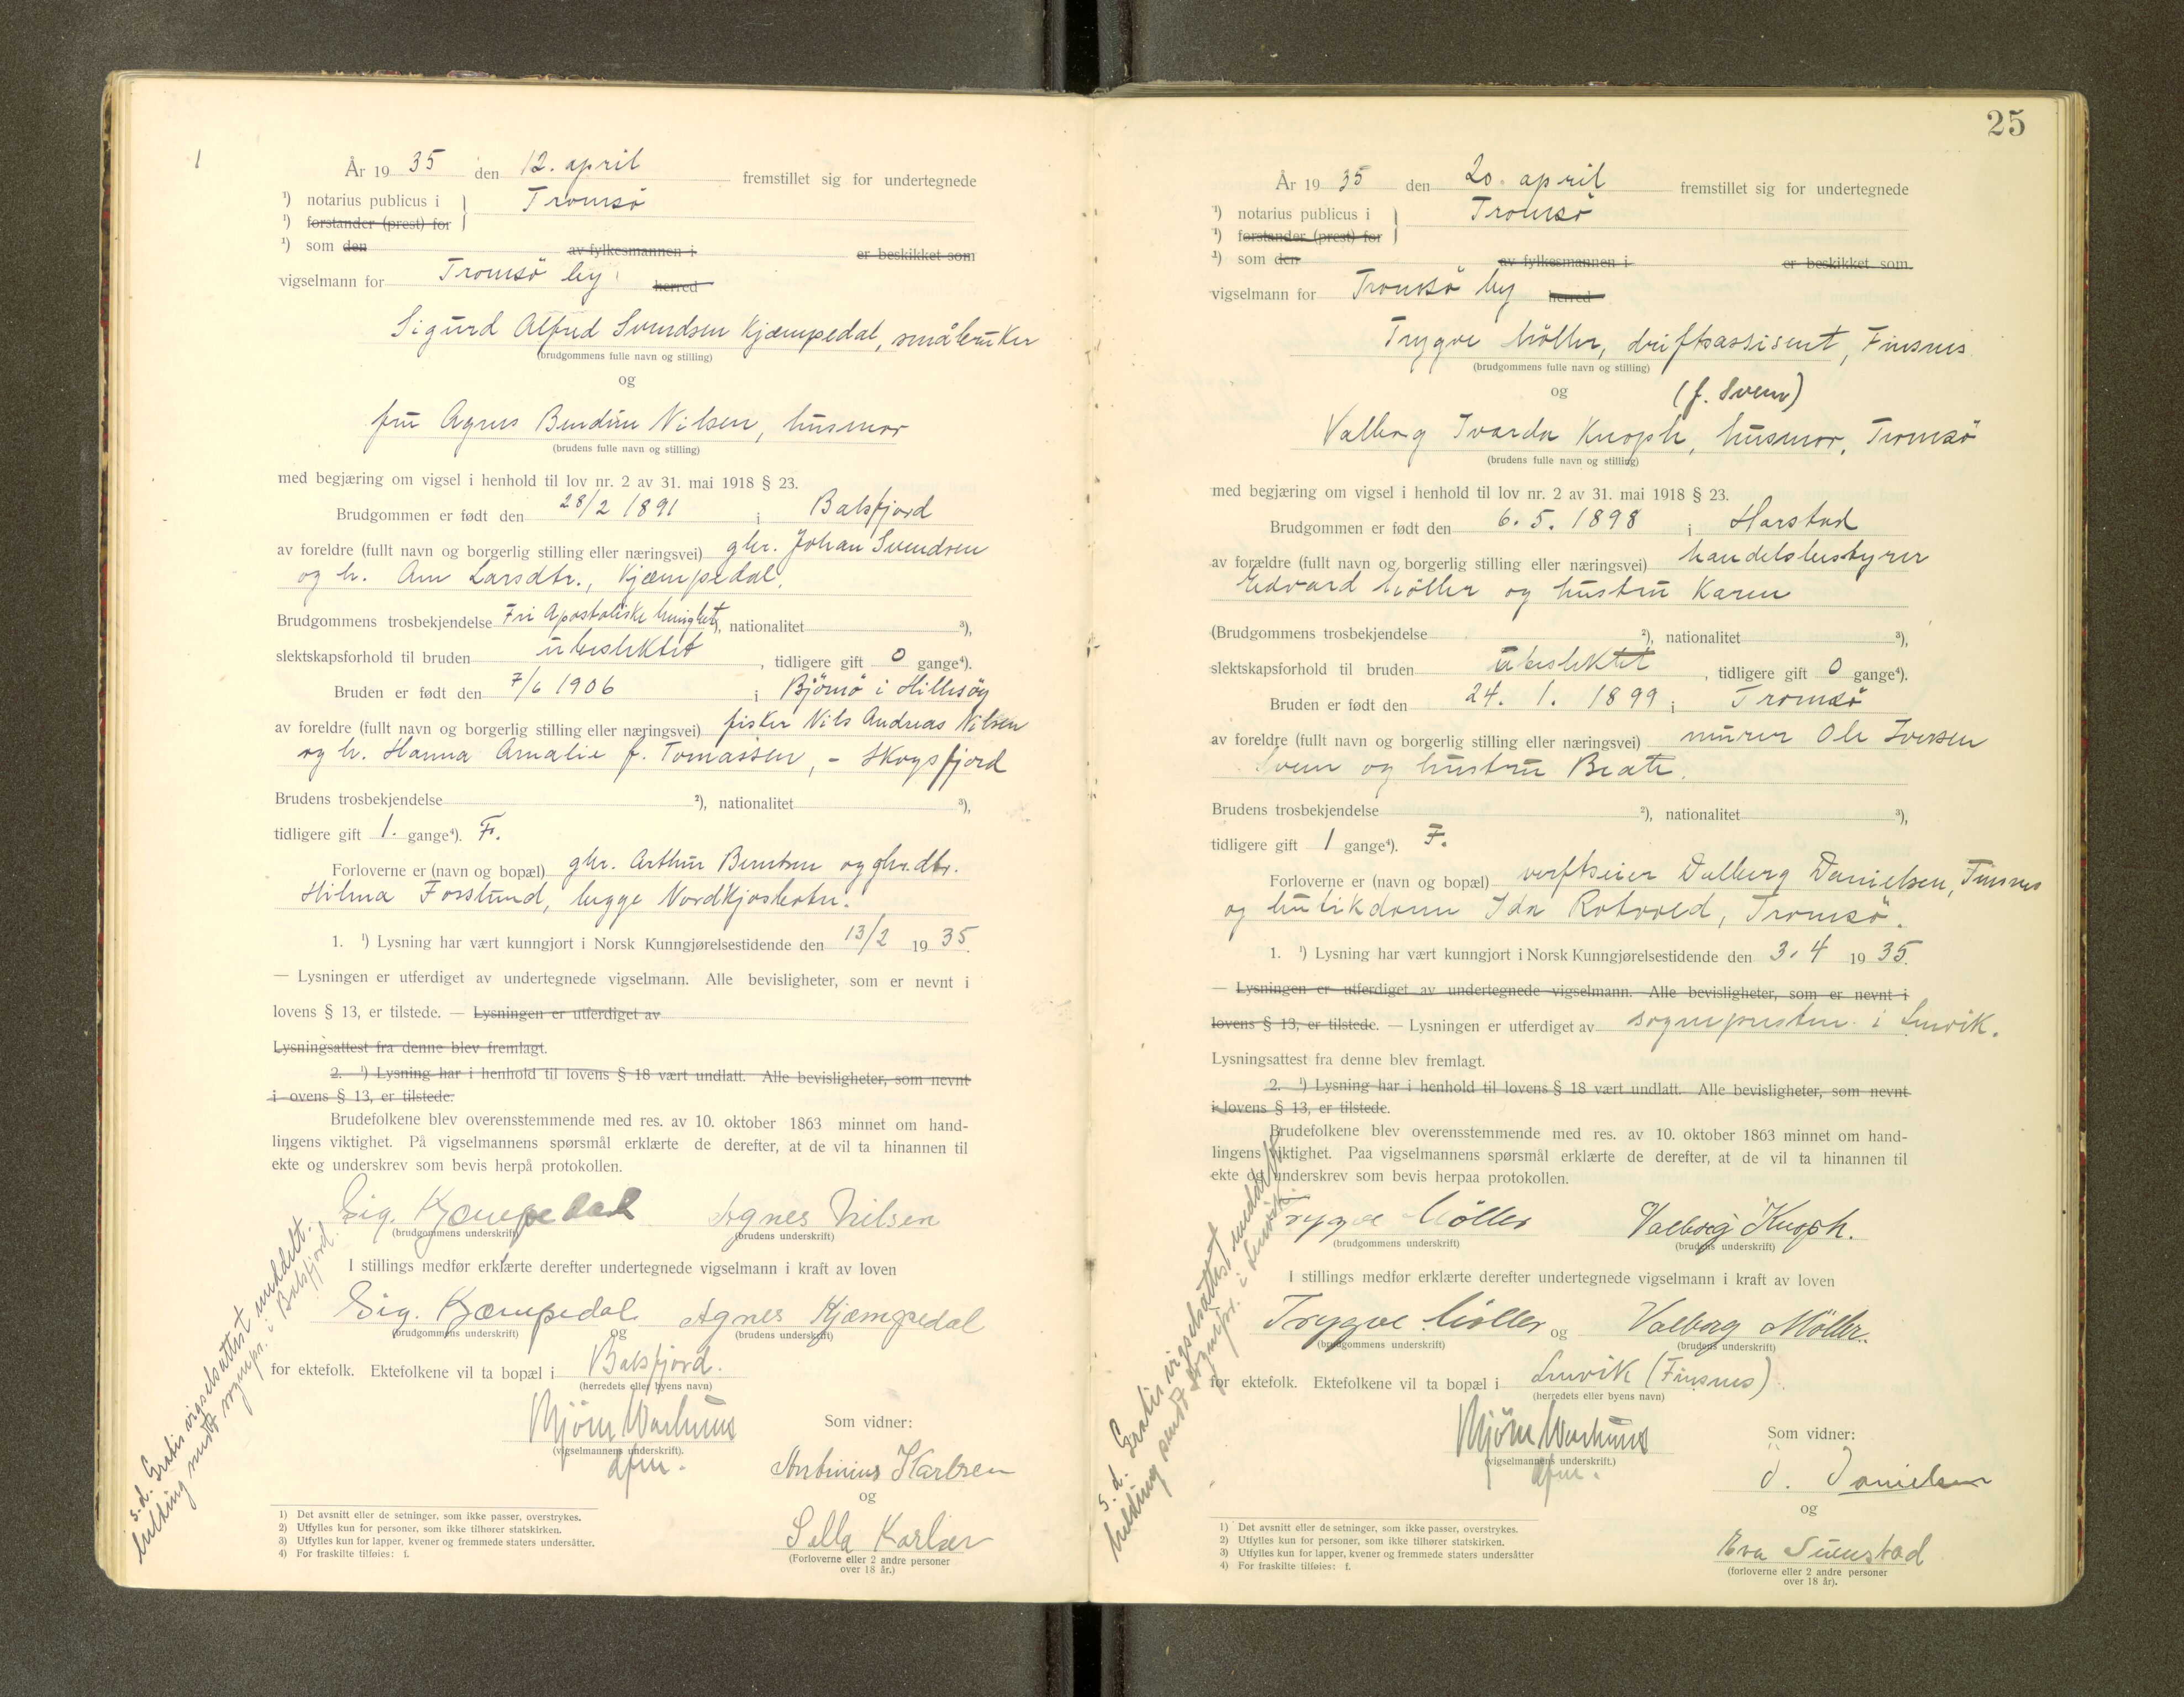 1
År 19 35 den 12. april fremstillet sig for undertegnede
¹) notarius publicus i } Tromsö
¹) forstander (prest) for
¹) som den av fylkesmannen i er beskikket som
vigselmann for Tromsö by herred
Sigurd Alfred Svendsen Kjæmpedal, småbruker
(brudgommens fulle navn og stilling)
og
fru Agnes Nilsen, husmor
(brudens fulle navn og stilling)
med begjæring om vigsel i henhold til lov nr. 2 av 31. mai 1918 § 23.
Brudgommen er født den 28/2 1891 i Balsfjord
av foreldre (fullt navn og borgerlig stilling eller næringsvei) gbr. Johan Svendsen
og h. Ane Larsdtr., Kjæmpedal.
Brudgommens trosbekjendelse Fri Apostoliske menighet ²), nationalitet ³),
slektskapsforhold til bruden ubeslektet, tidligere gift 0 gange⁴).
Bruden er født den 7/6 1906 i Björnö i Hillesöy
av foreldre (fullt navn og borgerlig stilling eller næringsvei) fisker Nils Andreas Nilsen
og h. Hanna Amalie f. Tomassen, - Skogsfjord
Brudens trosbekjendelse ²), nationalitet ³),
tidligere gift 1. gange⁴). F.
Forloverne er (navn og bopæl) gbr. Arthur Berntsen og gbr.dtr.
Hilma Forslund, begge Nordkjosbotn.
1. ¹) Lysning har vært kunngjort i Norsk Kunngjørelsestidende den 13/2 19 35.
— Lysningen er utferdiget av undertegnede vigselmann. Alle bevisligheter, som er nevnt i
lovens § 13, er tilstede. — Lysningen er utferdiget av
Lysningsattest fra denne blev fremlagt.
2. ¹) Lysning har i henhold til lovens § 18 vært undlatt. Alle bevisligheter, som nevnt
i ovens § 13, er tilstede.
Brudefolkene blev overensstemmende med res. av 10. oktober 1863 minnet om hand-
lingens viktighet. På vigselmannens spørsmål erklærte de derefter, at de vil ta hinannen til
ekte og underskrev som bevis herpå protokollen.
Sig. Kjæmpedal Agnes Nilsen
(brudgommens underskrift) (brudens underskrift)
I stillings medfør erklærte derefter undertegnede vigselmann i kraft av loven
Sig. Kjæmpedal og Agnes Kjæmpedal
(brudgommens underskrift) (brudens underskrift)
for ektefolk. Ektefolkene vil ta bopæl i Balsfjord.
(herredets eller byens navn)
Som vidner:
(vigselmannens underskrift).
Antinius Karlsen
og
Sella Karlsen
(Forloverne eller 2 andre personer
over 18 år.)
s.d. Gratis vigselsattest meddelt.
Melding sendt sognepr. i Balsfjord.
1) Det avsnitt eller de setninger, som ikke passer, overstrykes.
2) Utfylles kun for personer, som ikke tilhører statskirken.
3) Utfylles kun for lapper, kvener og fremmede staters undersåtter.
4) For fraskilte tilføies: f.
25
År 19 35 den 20. april fremstillet sig for undertegnede
¹) notarius publicus i } Tromsö
¹) forstander (prest) for
¹) som den av fylkesmannen i er beskikket som
vigselmann for Tromsö by herred
Trygve Möller, driftsassisent, Finsnes
(brudgommens fulle navn og stilling)
og (f. Sven)
Valborg Ivarda Knoph, husmor, Tromsö
(brudens fulle navn og stilling)
med begjæring om vigsel i henhold til lov nr. 2 av 31. mai 1918 § 23.
Brudgommen er født den 6. 5. 1898 i Harstad
av forældre (fullt navn og borgerlig stilling eller næringsvei) handelsbestyrer
Edvard Möller og hustru Karen
(Brudgommens trosbekjendelse ²), nationalitet ³),
slektskapsforhold til bruden ubeslektet, tidligere gift 0 gange⁴).
Bruden er født den 24. 1. 1899 i Tromsö
av foreldre (fullt navn og borgerlig stilling eller næringsvei) murer Ole Iversen
Sven og hustru Beate.
Brudens trosbekjendelse ²), nationalitet ³),
tidligere gift 1 gange⁴). F.
Forloverne er (navn og bopæl) verftseier Dalberg Danielsen, Finsnes
og butikdame Ida Rotvold, Tromsö.
1. ¹) Lysning har vært kunngjort i Norsk Kunngjørelsestidende den 3. 4 19 35.
— Lysningen er utferdiget av undertegnede vigselmann. Alle bevisligheter, som er nevnt i
lovens § 13, er tilstede. — Lysningen er utferdiget av sognepresten i Lenvik.
Lysningsattest fra denne blev fremlagt.
2. ¹) Lysning har i henhold til lovens § 18 vært undlatt. Alle bevisligheter, som nevnt
i lovens § 13, er tilstede.
Brudefolkene blev overensstemmende med res. av 10. oktober 1863 minnet om hand-
lingens viktighet. Paa vigselmannens spørsmål erklærte de derefter, at de vil ta hinannen til
ekte og underskrev som bevis herpaa protokollen.
Trygve Möller Valborg Knoph.
(brudgommens underskrift) (brudens underskrift)
I stillings medfør erklærte derefter undertegnede vigselmann i kraft av loven
Trygve Möller og Valborg Möller.
(brudgommens underskrift) (brudens underskrift)
for ektefolk. Ektefolkene vil ta bopæl i Lenvik (Finsnes)
(herredets eller byens navn)
Som vidner:
(vigselmannens underskrift.)
D. Danielsen
og
Eva
(forloverne eller 2 andre personer
over 18 år).
s.d. Gratis vigselsattest meddelt.
Melding sendt sognepr. i Lenvik.
1) Det avsnitt eller de setninger, som ikke passer, overstrykes.
2) Utfylles kun for personer, som ikke tilhører statskirken.
3) Utfylles kun for lapper, kvener og fremmede staters undersåtter
4) For fraskilte tilføies: f.